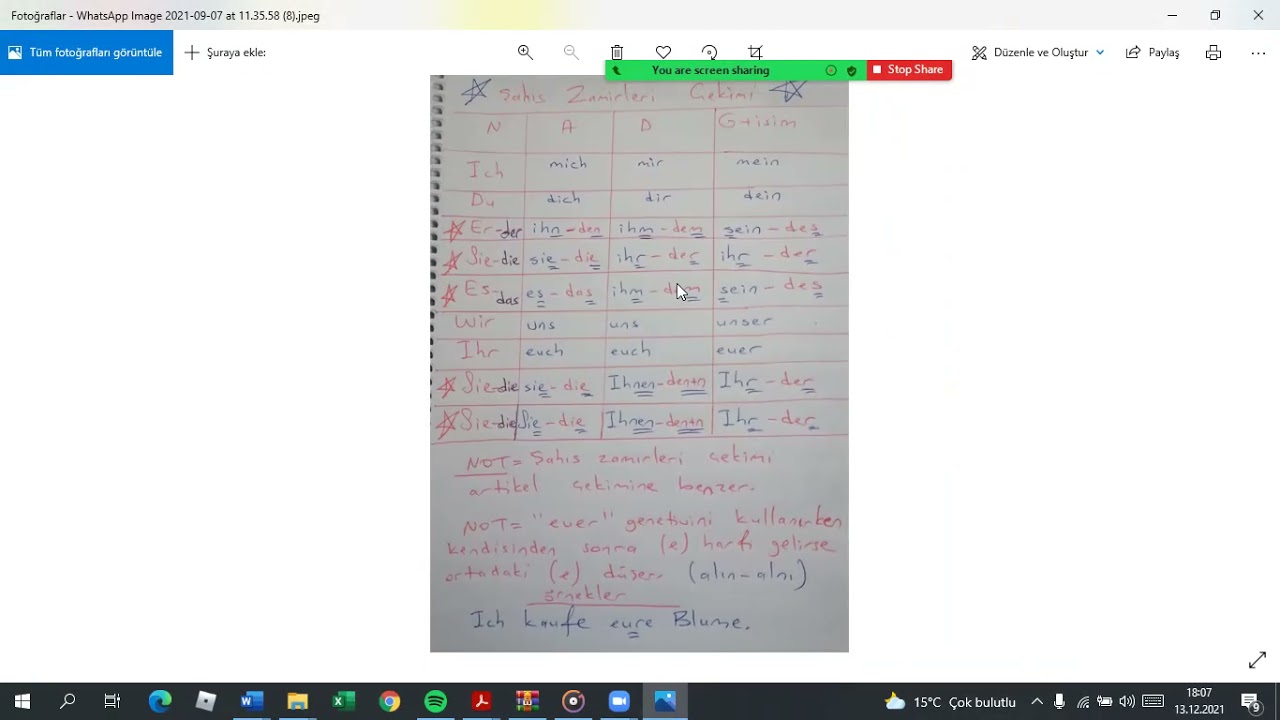 Fotoğraflar - WhatsApp Image 2021-09-07 at 11.35.58 (8).jpeg
Tüm fotoğrafları görüntüle
Şuraya ekle:
Düzenle ve Oluştur
Paylaş
You are screen sharing
Stop Share
Şahıs Zamirleri Çekimi
N A D G+isim
Ich mich mir mein
Du dich dir dein
Er-der ihn-den ihm-dem sein-des
Sie-die sie-die ihr-der ihr-der
Es-das es-das ihm-dem sein-des
Wir uns uns unser
Ihr euch euch euer
Sie-die sie-die Ihnen-den+n Ihr-der
Sie-die Sie-die Ihnen-den+n Ihr-der
NOT= Şahıs zamirleri çekimi
artikel çekimine benzer.
NOT= "euer" genetivini kullanırken
kendisinden sonra (e) harfi gelirse
ortadaki (e) düşer. (alın-alnı)
örnekler
Ich kaufe eure Blume.
15°C Çok bulutlu
18:07
13.12.2021
9